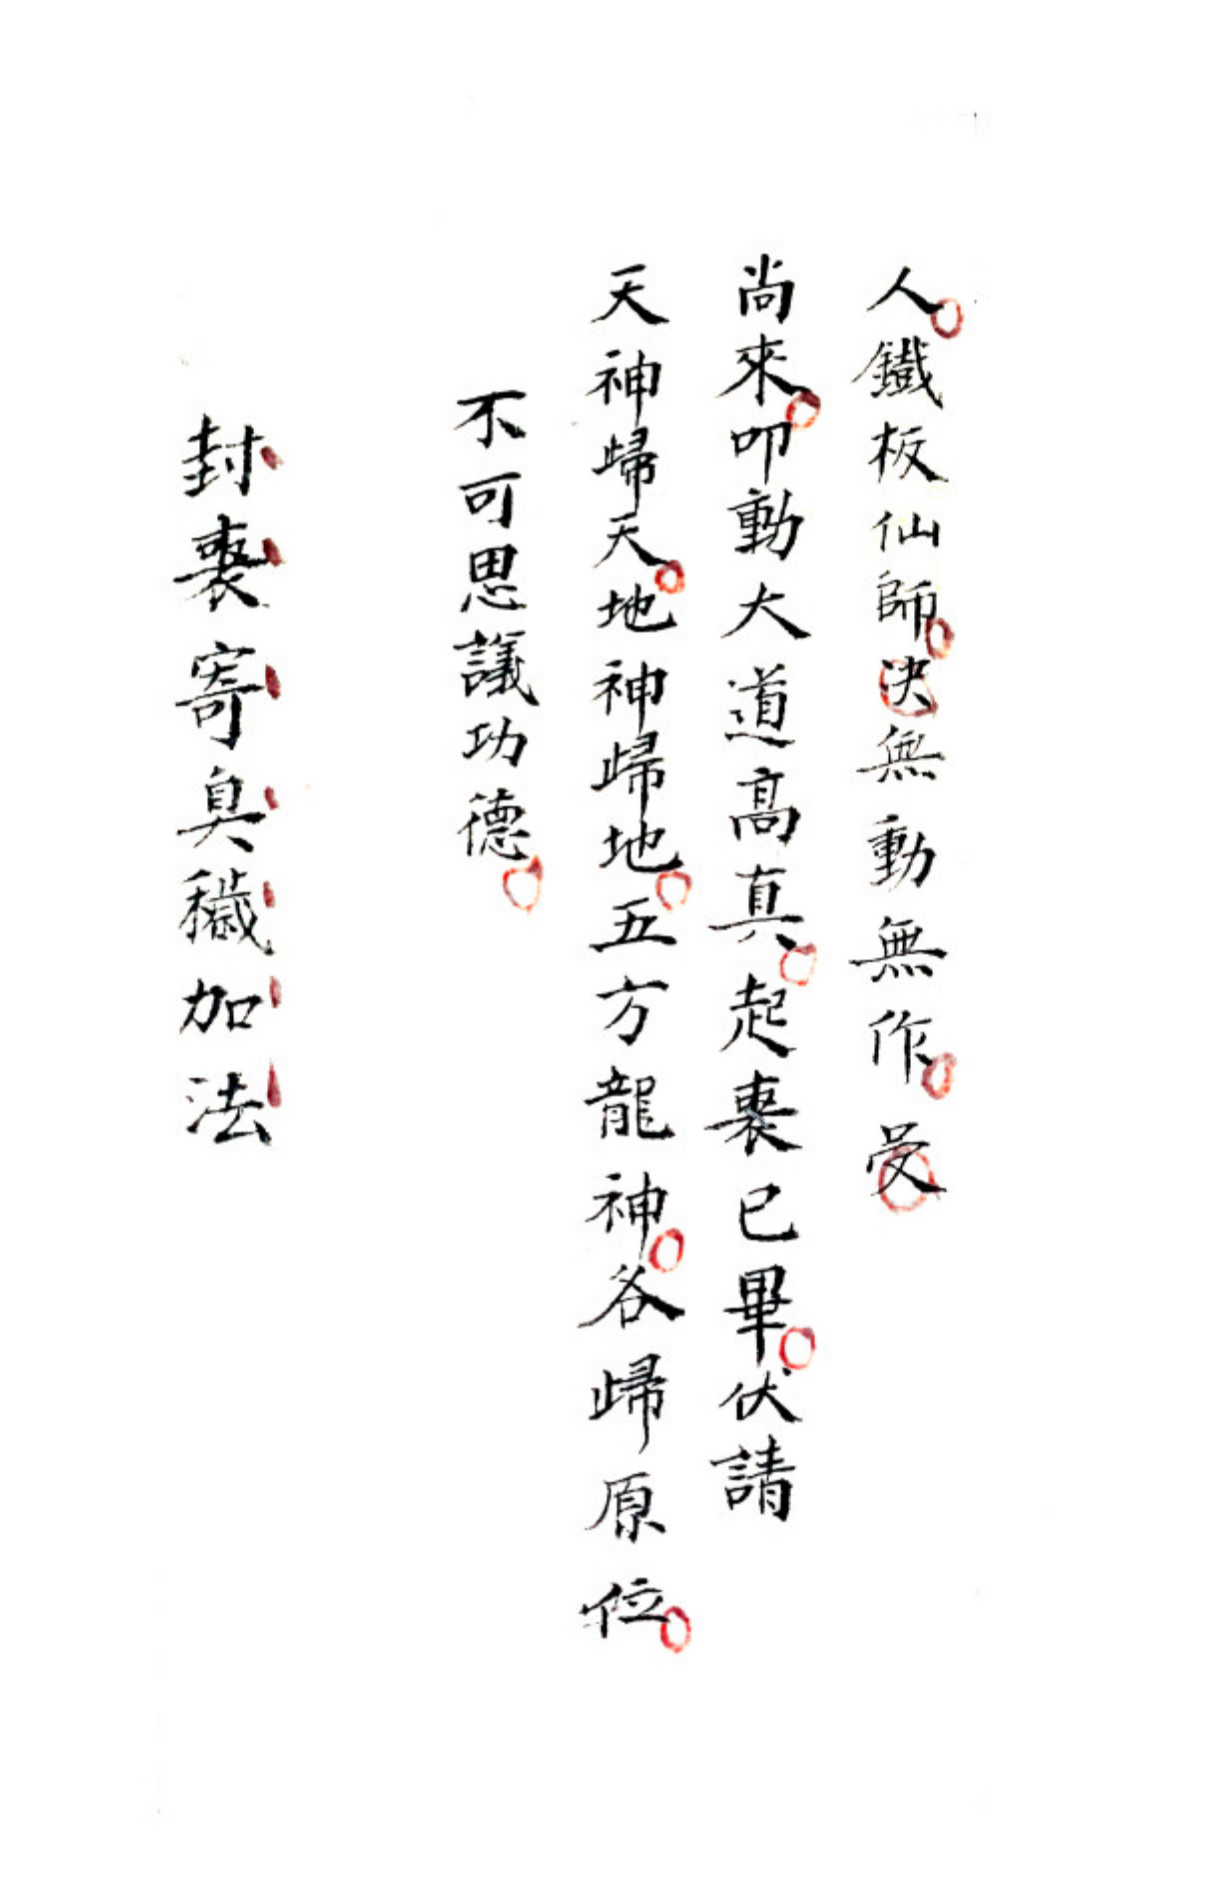 人鐵板仙師决無動無作受
尚來叩動大道高真起喪已畢伏請
天神歸天地神歸地五方龍神各歸原位
不可思議功德
封喪寄臭穢加法